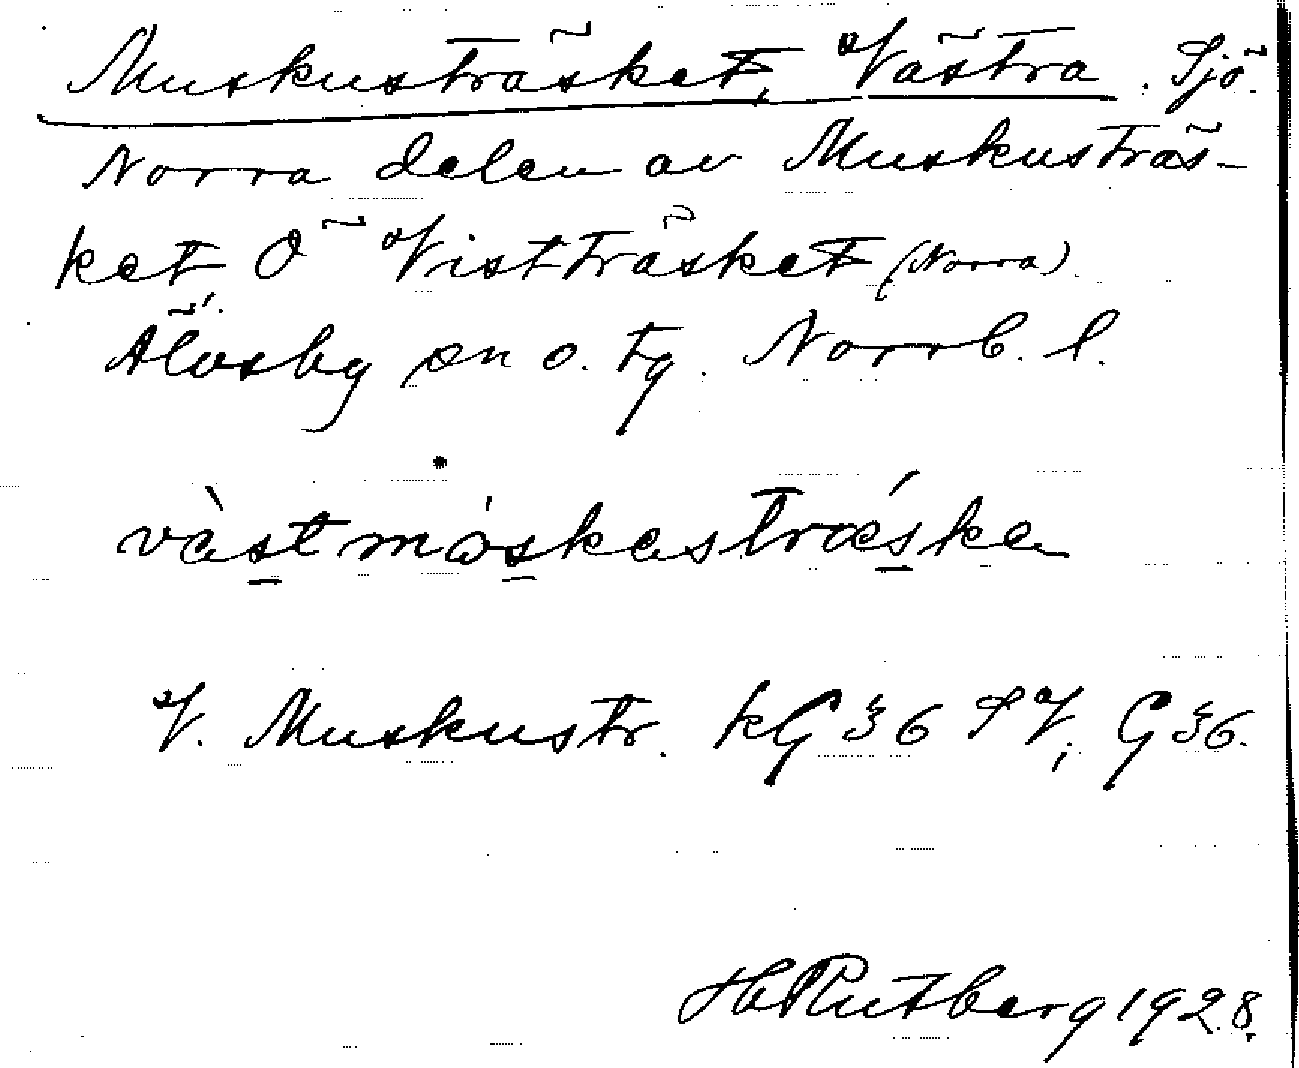 Muskusträsket, Västra. Sjö.
Norra delen av Muskusträs-
ket Ö Vistträsket (Norra)
Älvsby sn o. tg. Norrb. l.
vàst mòskasträ́ska
V. Muskustr. kG 36 SV, G 36.
H Rutberg 1928.